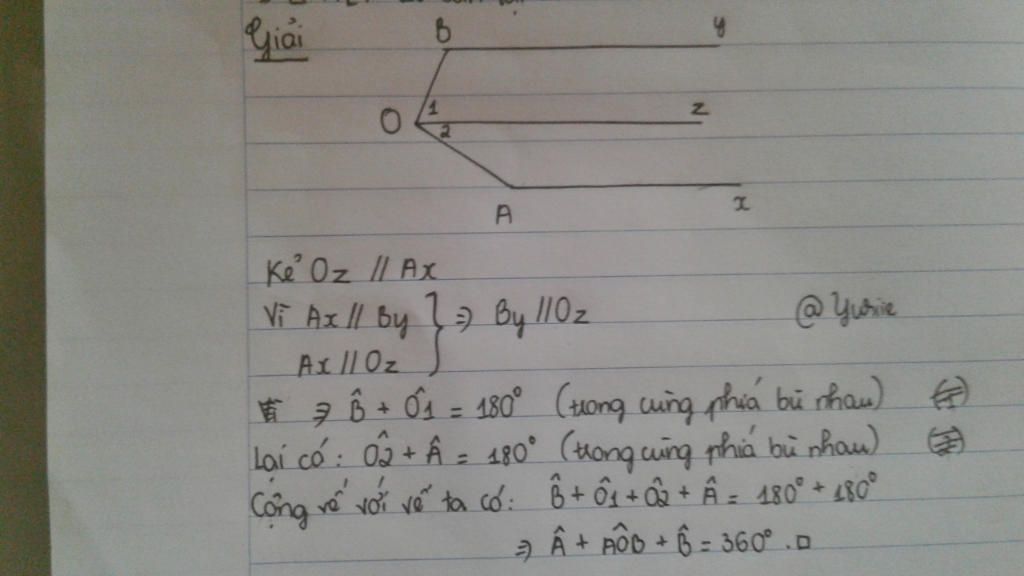 Giải
B
y
O
1
2
z
A
x
Kẻ Oz // Ax
Vì Ax // By } ⇒ By // Oz
@Yuriie
Ax // Oz
⇒ B̂ + Ô1 = 180° (trong cùng phía bù nhau)
Lại có: Ô2 + Â = 180° (trong cùng phía bù nhau)
Cộng vế với vế ta có: B̂ + Ô1 + Ô2 + Â = 180° + 180°
⇒ Â + AÔB + B̂ = 360°. □